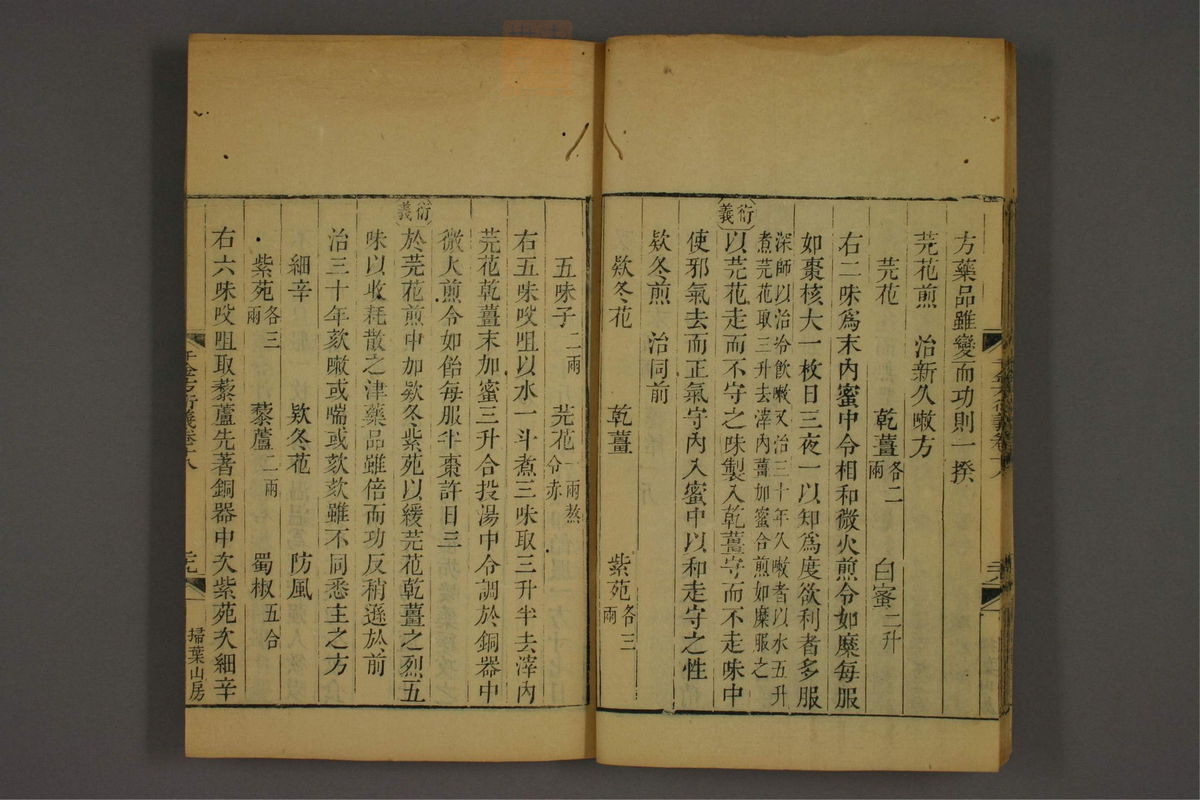 方藥品雖變而功則一揆
芫花煎　治新久嗽方
芫花　乾薑各二兩　白蜜二升
右二味爲末內蜜中令相和微火煎令如糜每服
如棗核大一枚日三夜一以知爲度欲利者多服
深師以治冷飲嗽又治三十年久嗽者以水五升
煮芫花取三升去滓內薑加蜜合煎如糜服之
衍義
以芫花走而不守之味製入乾薑守而不走味中
使邪氣去而正氣守內入蜜中以和走守之性
欵冬煎　治同前
欵冬花　乾薑　紫菀各三兩
五味子二兩　芫花一兩熬令赤
右五味㕮咀以水一斗煮三味取三升半去滓內
芫花乾薑末加蜜三升合投湯中令調於銅器中
微火煎令如飴每服半棗許日三
衍義
於芫花煎中加欵冬紫菀以緩芫花乾薑之烈五
味以收耗散之津藥品雖倍而功反稍遜於前
治三十年欬嗽或喘或欬欬雖不同悉主之方
細辛　欵冬花　防風
紫菀各三兩　藜蘆二兩　蜀椒五合
右六味㕮咀取藜蘆先著銅器中次紫菀次細辛
掃葉山房